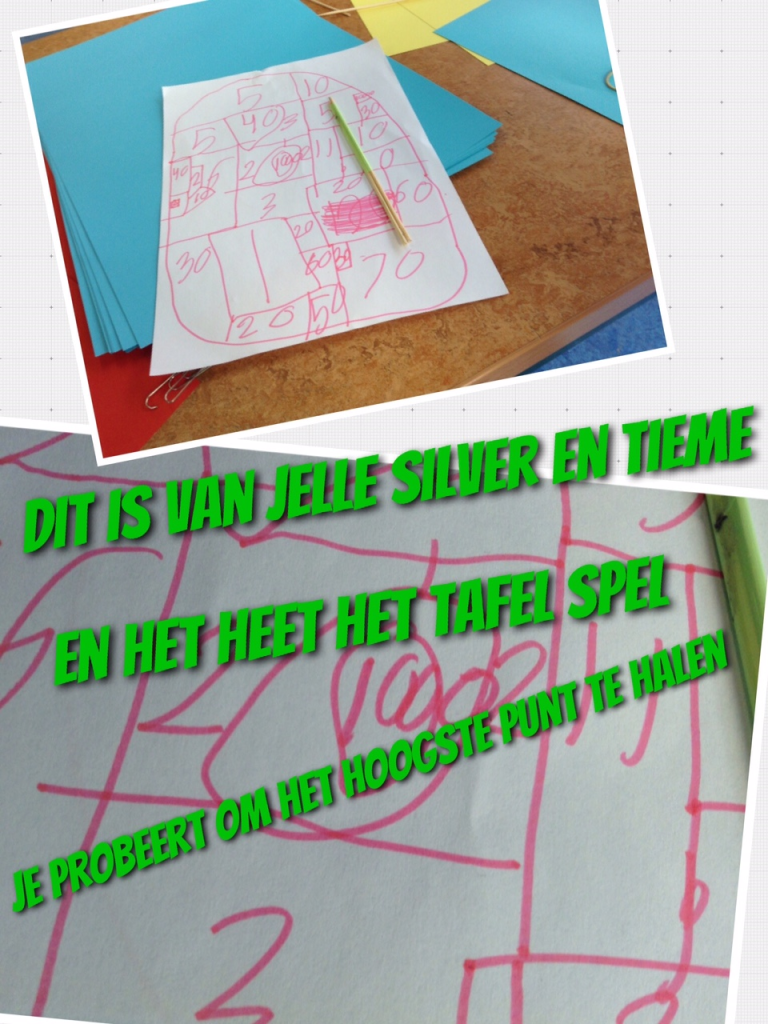 5 10
5 40 3 5 30
11 10
40 2 2 1000 2 0
10 20
3 60
30 1 20
60 30 70
20 50
DIT IS VAN JELLE SILVER EN TIEME
EN HET HEET HET TAFEL SPEL
JE PROBEERT OM HET HOOGSTE PUNT TE HALEN
2 1000 2 11
3 0